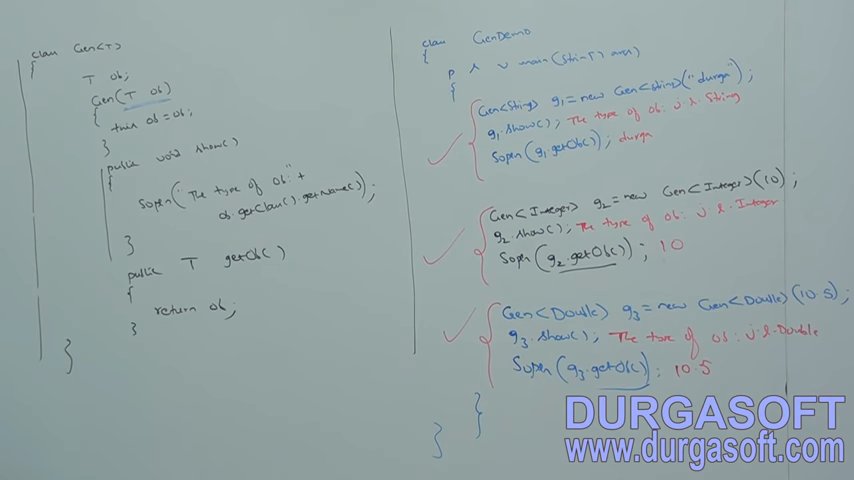 class Gen<T>
{
T ob;
Gen(T ob)
{
this.ob = ob;
}
public void show()
{
Sopln("The type of ob:" +
ob.getClass().getName());
}
public T getOb()
{
return ob;
}
}
class GenDemo
{
p s v main(String[] args)
{
Gen<String> g1 = new Gen<String>("durga");
g1.show(); The type of ob: j.l.String
Sopln(g1.getOb()); durga
Gen<Integer> g2 = new Gen<Integer>(10);
g2.show(); The type of ob: j.l.Integer
Sopln(g2.getOb()); 10
Gen<Double> g3 = new Gen<Double>(10.5);
g3.show(); The type of ob: j.l.Double
Sopln(g3.getOb()); 10.5
}
}
DURGASOFT
www.durgasoft.com